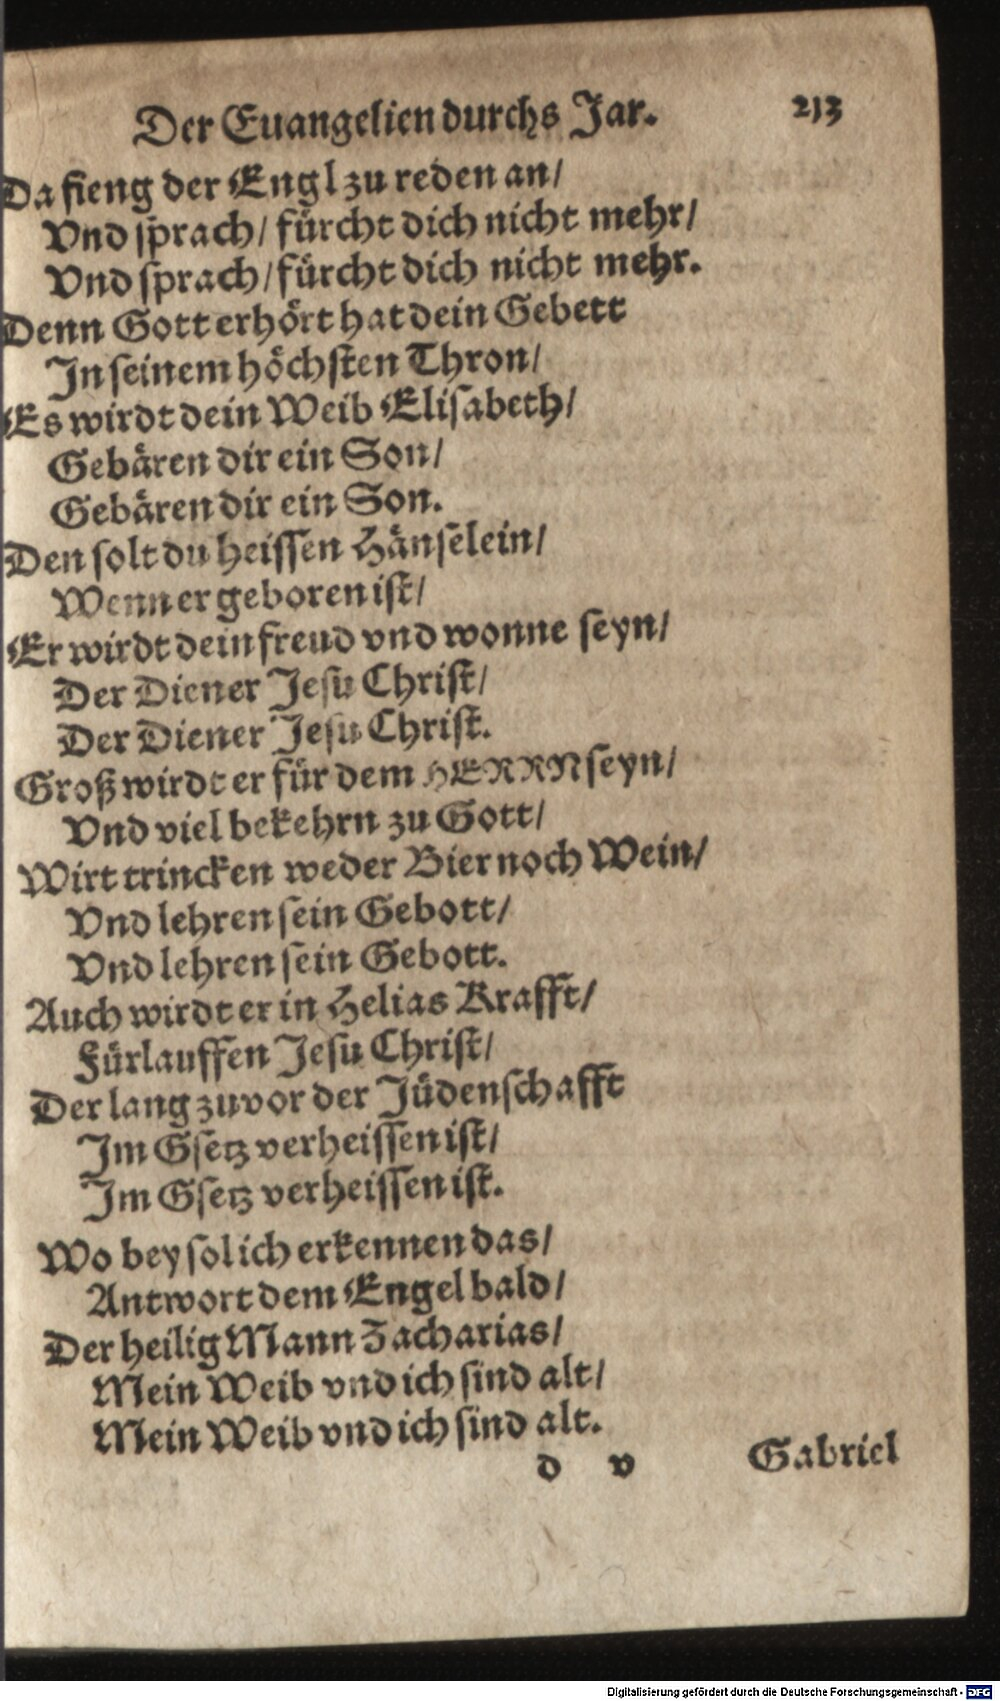 Der Euangelien durchs Jar. 213
Da fieng der Engl zu reden an/
Vnd sprach/ fürcht dich nicht mehr/
Vnd sprach/ fürcht dich nicht mehr.
Denn Gott erhört hat dein Gebett
In seinem höchsten Thron/
Es wirdt dein Weib Elisabeth/
Gebären dir ein Son/
Gebären dir ein Son.
Den solt du heissen Hänselein/
Wenn er geboren ist/
Er wirdt dein freud vnd wonne seyn/
Der Diener Jesu Christ/
Der Diener Jesu Christ.
Groß wirdt er für dem HERRN seyn/
Vnd viel bekehrn zu Gott/
Wirt trincken weder Bier noch Wein/
Vnd lehren sein Gebott/
Vnd lehren sein Gebott.
Auch wirdt er in Helias Krafft/
Fürlauffen Jesu Christ/
Der lang zuvor der Jüdenschafft
Im Gsetz verheissen ist/
Im Gsetz verheissen ist.
Wo bey sol ich erkennen das/
Antwort dem Engel bald/
Der heilig Mann Zacharias/
Mein Weib vnd ich sind alt/
Mein Weib vnd ich sind alt.
d v Gabriel
Digitalisierung gefördert durch die Deutsche Forschungsgemeinschaft - DFG